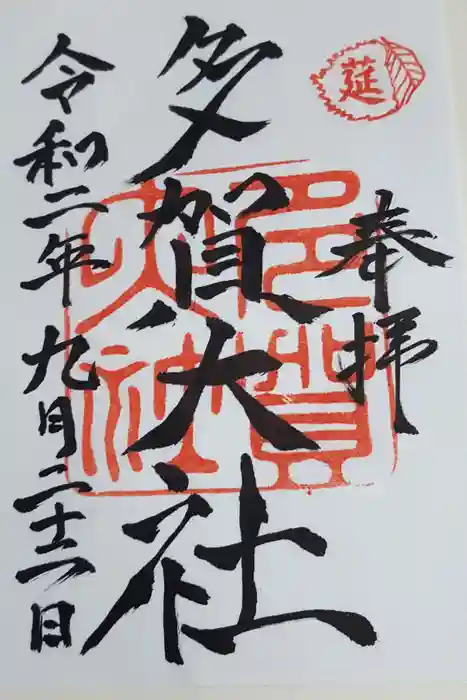 奉拝
莚
多賀大社
多賀大社
令和二年九月二十一日